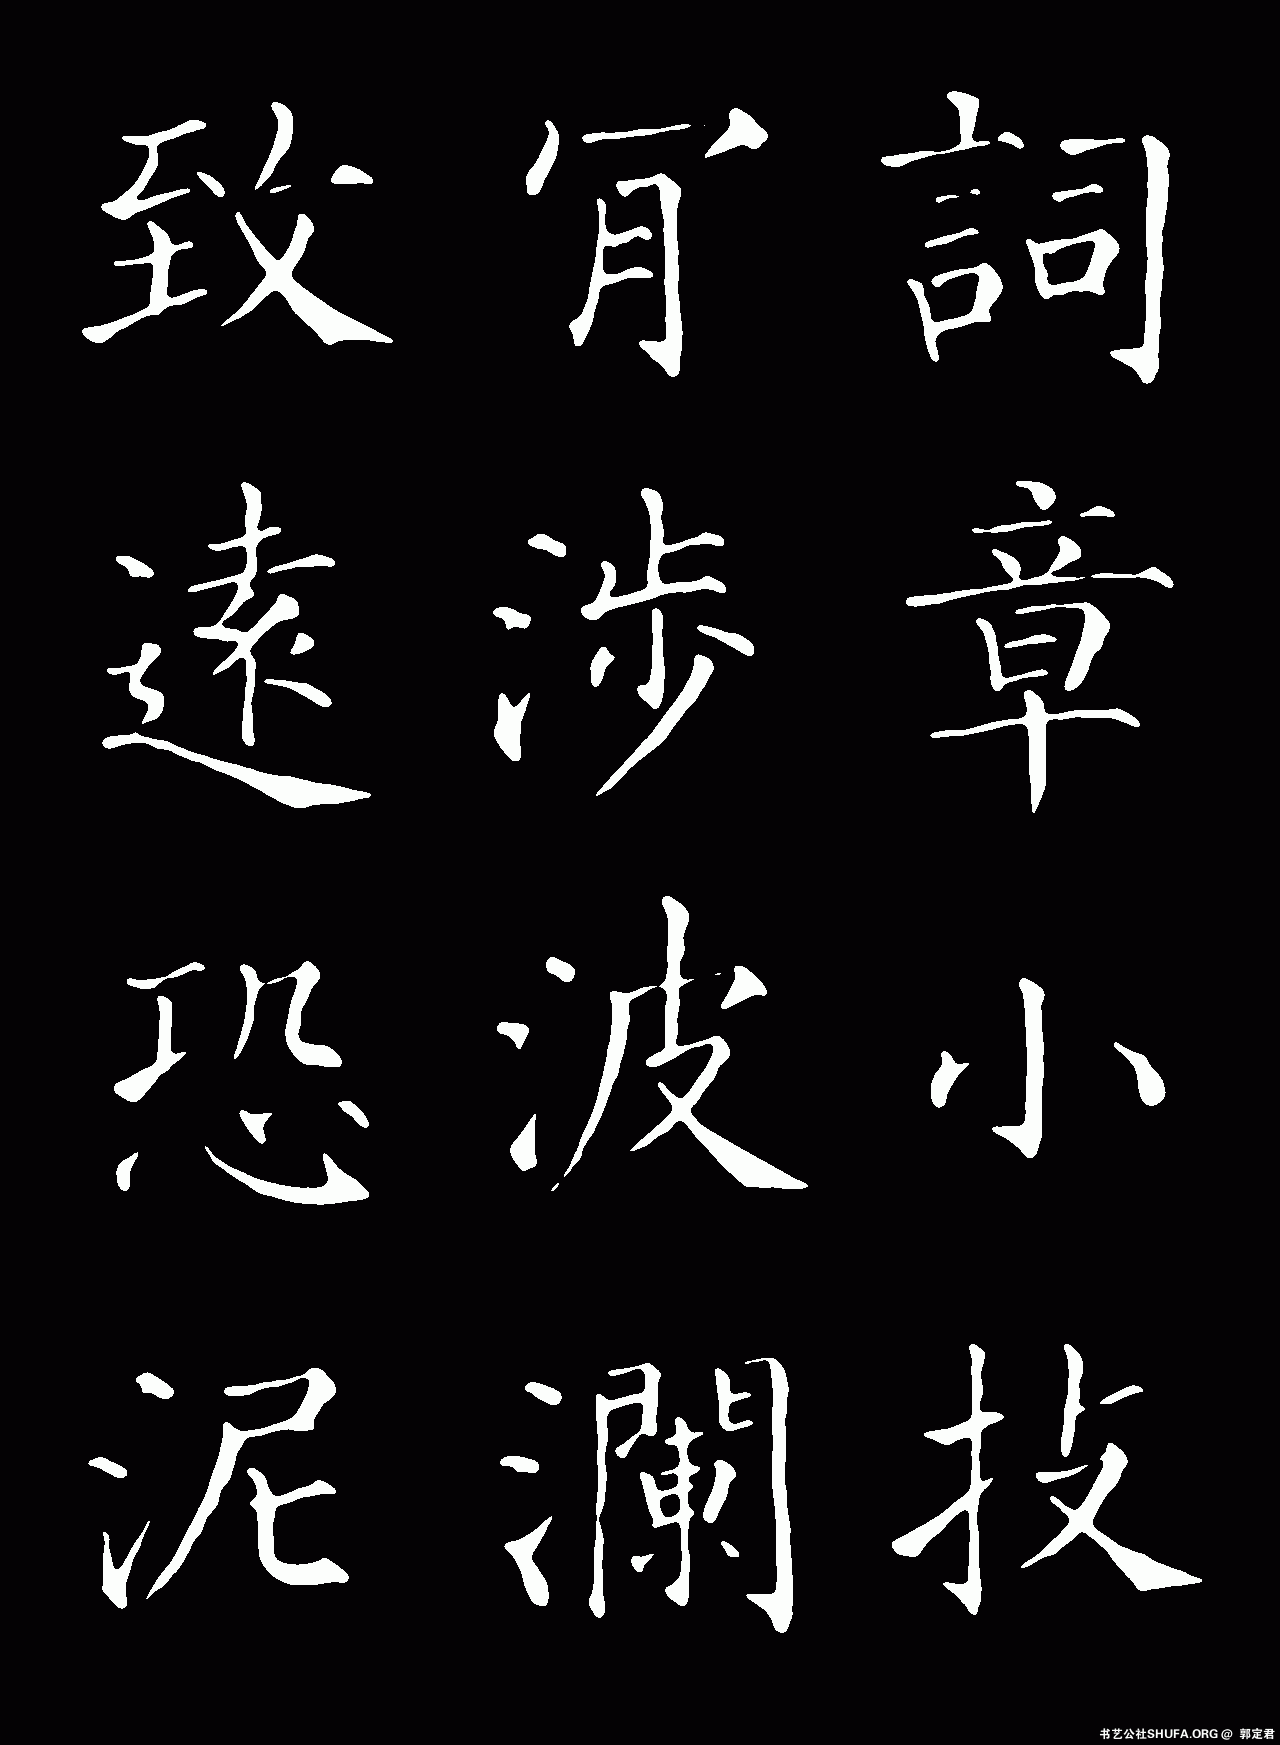 詞章小技
冐涉波瀾
致遠恐泥
书艺公社SHUFA.ORG @ 郭定君